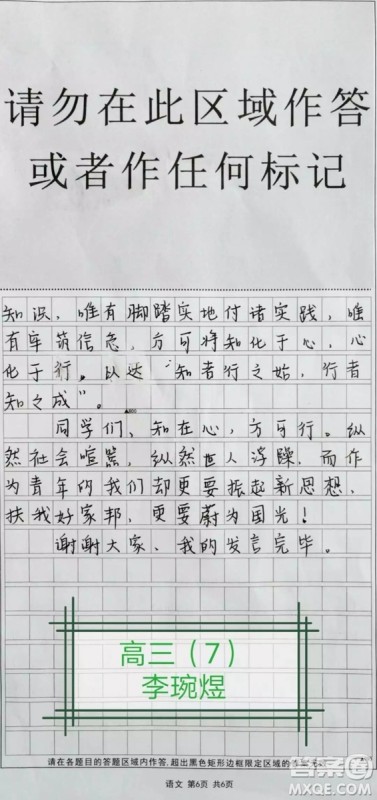 请勿在此区域作答
或者作任何标记
知识，唯有脚踏实地付诸实践，唯
有牢筑信念，方可将知化于心，心
化于行。以达“知者行之始，行者
知之成”。
▲800
同学们，知在心，方可行。纵
然社会喧嚣，纵然世人浮躁，而作
为青年的我们却更要振起新思想，
扶我好家邦，更要蔚为国光！
谢谢大家，我的发言完毕。
高三（7）
李琬煜
请在各题目的答题区域内作答，超出黑色矩形边框限定区域的
答案圈
MXQE.COM
语文 第6页 共6页